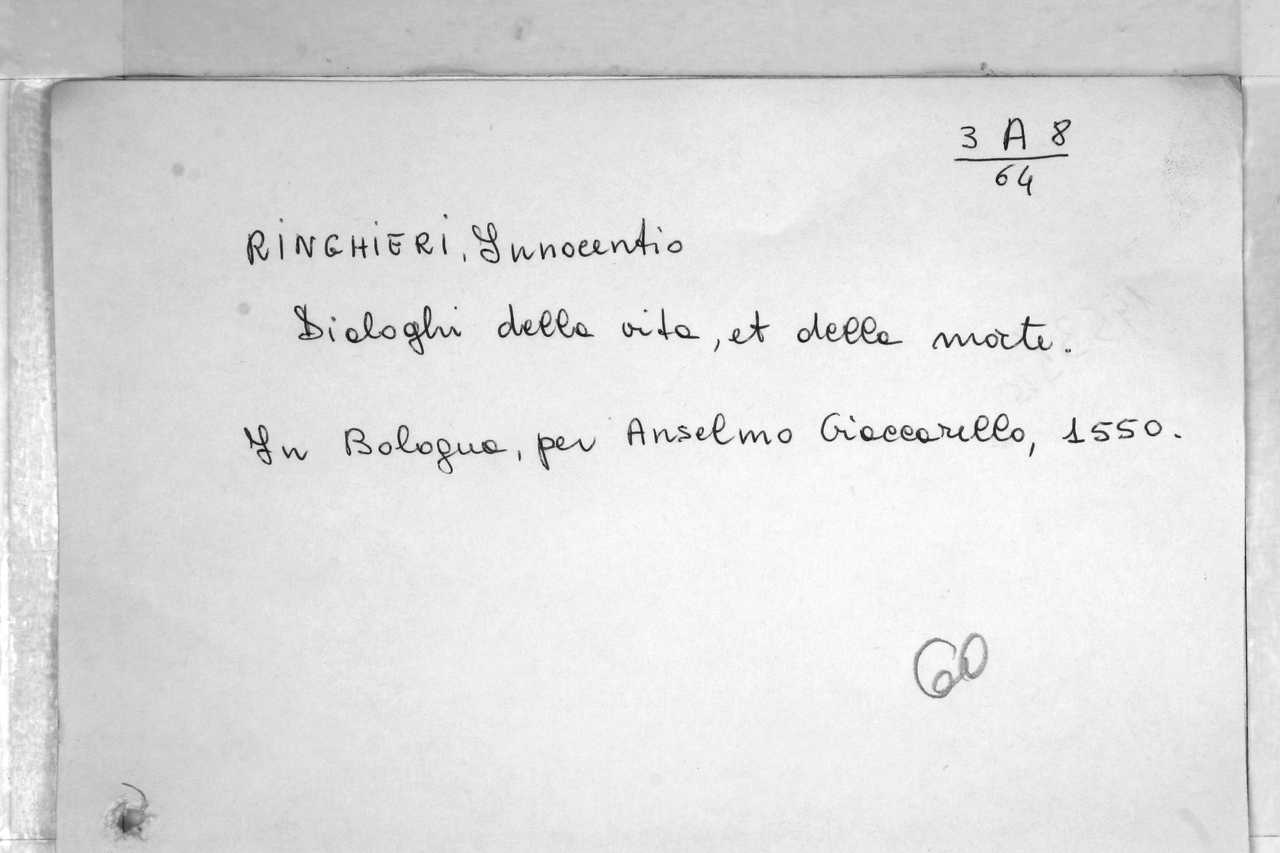 3 A 8
64
RINGHIERI, Innocentio
Dialoghi della vita, et della morte.
In Bologna, per Anselmo Giaccarello, 1550.
60